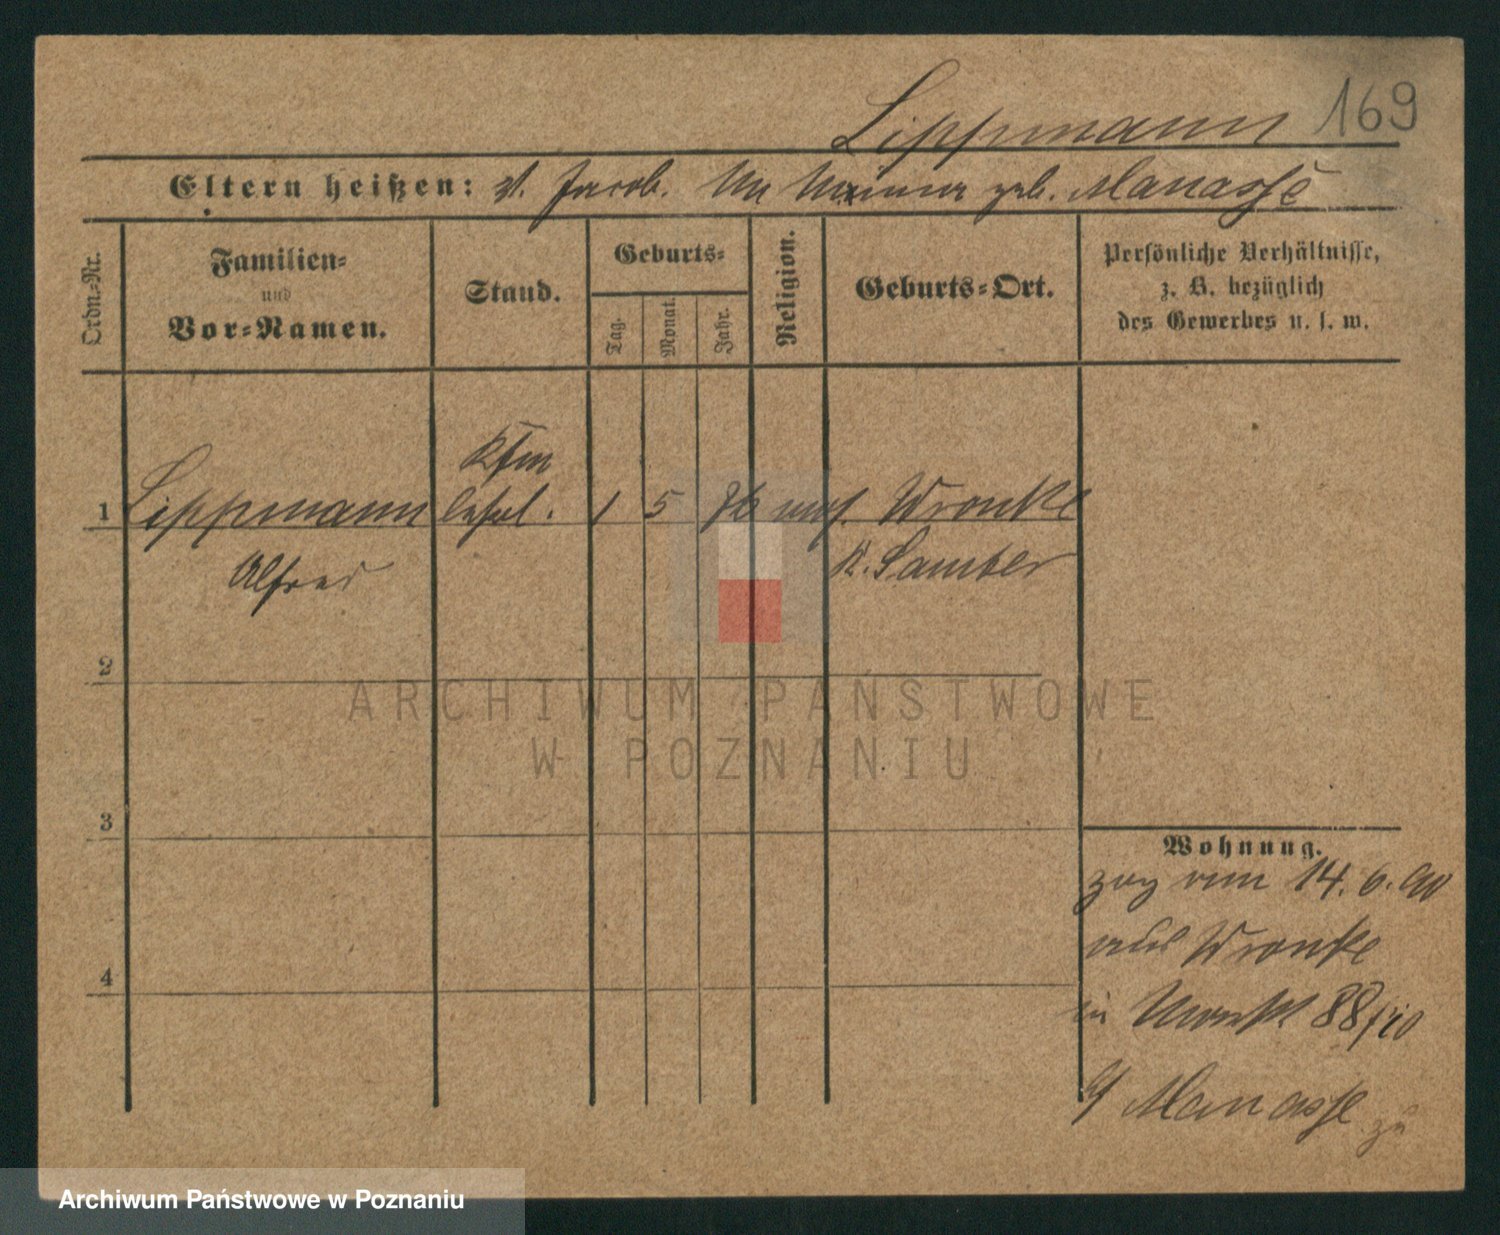 Lippmann 169
Eltern heißen: V. Jacob. geb. Manasse
Ordn.-Nr.
Familien-
und
Vor-Namen.
Stand.
Geburts-
Tag.
Monat.
Jahr.
Religion.
Geburts-Ort.
Persönliche Verhältnisse,
z. B. bezüglich
des Gewerbes u. s. w.
Kfm
1 Lippmann 1 5 mos. Wronke
Alfred K. Samter
2
3
4
Wohnung.
zog am 14. 6. 90
aus Wronke
in
Manasse
ARCHIWUM PAŃSTWOWE
W POZNANIU
Archiwum Państwowe w Poznaniu